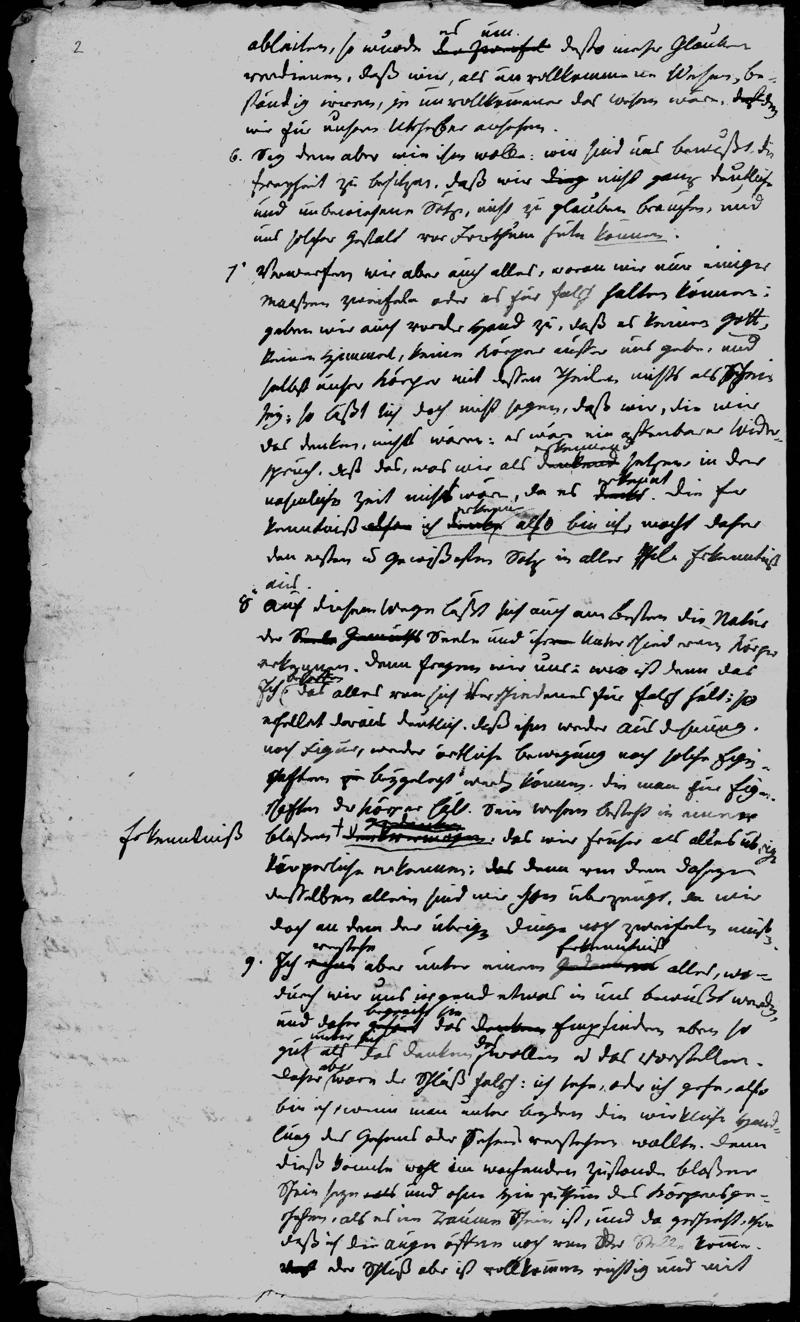 2
ableiten, so würde es um desto mehr Glauben
verdienen, daß wir, als unvollkommene Wesen, be-
ständig irren, je unvollkommener das Wesen wäre,
wir für unsern Urheber ansehen.
6. Sey dem aber wie ihm wolle: wir sind uns bewußt, die
Freyheit zu besitzen, daß wir nicht ganz deutliche
und unbewiesene Sätze, nicht zu glauben brauchen, und
uns solcher Gestalt vor Irrthum hüten können.
7. Verwerfen wir aber auch alles, woran wir nur einiger
Maaßen zweifeln oder es für falsch halten können;
geben wir auch vor der Hand zu, daß es keinen Gott,
keinen Himmel, keine Körper außer uns gebe, und
selbst unser Körper mit dessen Theilen nichts als Schein
sey; so läßt sich doch nicht sagen, daß wir, die wir
das denken, nichts wären: es wäre ein offenbarer Wider-
spruch, daß das, was wir als erkennend setzen in der
nähmlichen Zeit nichts wäre, da es erkennt. Die Er
kenntniß ich erkenne also bin ich, macht daher
den ersten u gewißesten Satz in aller Erkenntniß
aus.
8. Auf diesem Wege läßt sich auch am besten die Natur
der Seele und ihr Unterschied vom Körper
erkennen. Denn fragen wir uns: wer ist denn das
Ich das alles von sich Verschiedenes für falsch hält; so
erhellet daraus deutlich, daß ihm weder Ausdehnung,
noch Figur, weder örtliche Bewegung noch solche Eigen-
schaften beygelegt werden können, die man für Eigen-
schaften der Körper hält. Sein Wesen besteht in einer
Erkenntniß
bloßen das wir früher als alles übrige
Körperliche erkennen; denn von dem Daseyn
desselben allein sind wir schon überzeugt, da wir
doch an dem der übrigen Dinge noch zweifeln müßen.
9. Ich verstehe aber unter einem Erkenntniß alles, wo-
durch wir uns irgend etwas in uns bewußt werden,
und daher das Empfinden eben so
gut als das Denken das Wollen u das Vorstellen.
Daher aber wäre der Schluß falsch: ich sehe, oder ich gehe, also
bin ich, wenn man unter beyden die wirkliche Hand-
lung des Gehens oder Sehens verstehen wollte. Denn
dieß könnte wohl im wachenden Zustande bloßer
Schein seyn und ohne Hinzuthun des Körpers ge-
schehen, als es im Traume Schein ist, und da geschieht, ohne
daß ich die Augen öffne noch von der Stelle komme.
der Schluß aber ist vollkommen richtig und mit